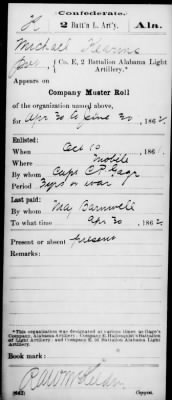 Confederate.
K 2 Batt'n L. Art'y. Ala.
Michael Kearns
Pvt., Co. E, 2 Battalion Alabama Light
Artillery.*
Appears on
Company Muster Roll
of the organization named above,
for Apr 30 to June 30, 1862.
Enlisted:
When Oct 10, 1861.
Where Mobile
By whom Capt C.P. Gage
Period 3 yrs or war
Last paid:
By whom Maj Barnwell
To what time Apr 30, 1862.
Present or absent Present
Remarks:
*This organization was designated at various times as Gage's
Company, Alabama Artillery; Company E, Hallonquist's Battalion
of Light Artillery; and Company E, 2d Battalion Alabama Light
Artillery.
Book mark:
(642)
Copyist.